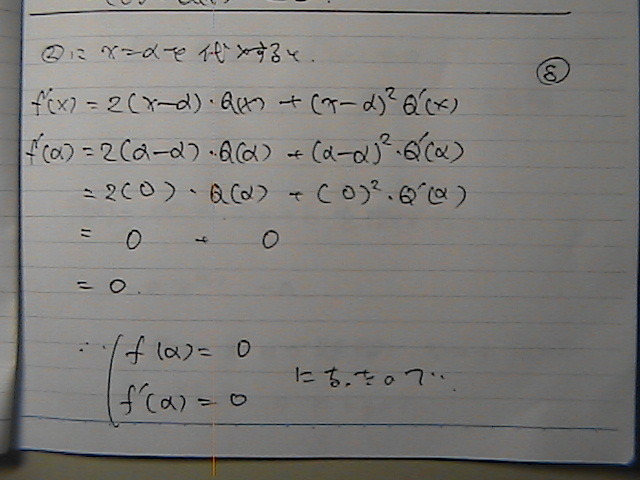 ②に x=αを代入すると.
⑧
f'(x) = 2(x-α)・Q(x) + (x-α)²Q'(x)
f'(α) = 2(α-α)・Q(α) + (α-α)²・Q'(α)
= 2(0)・Q(α) + (0)²・Q'(α)
= 0 + 0
= 0.
∴ f(α) = 0
f'(α) = 0
になったので…